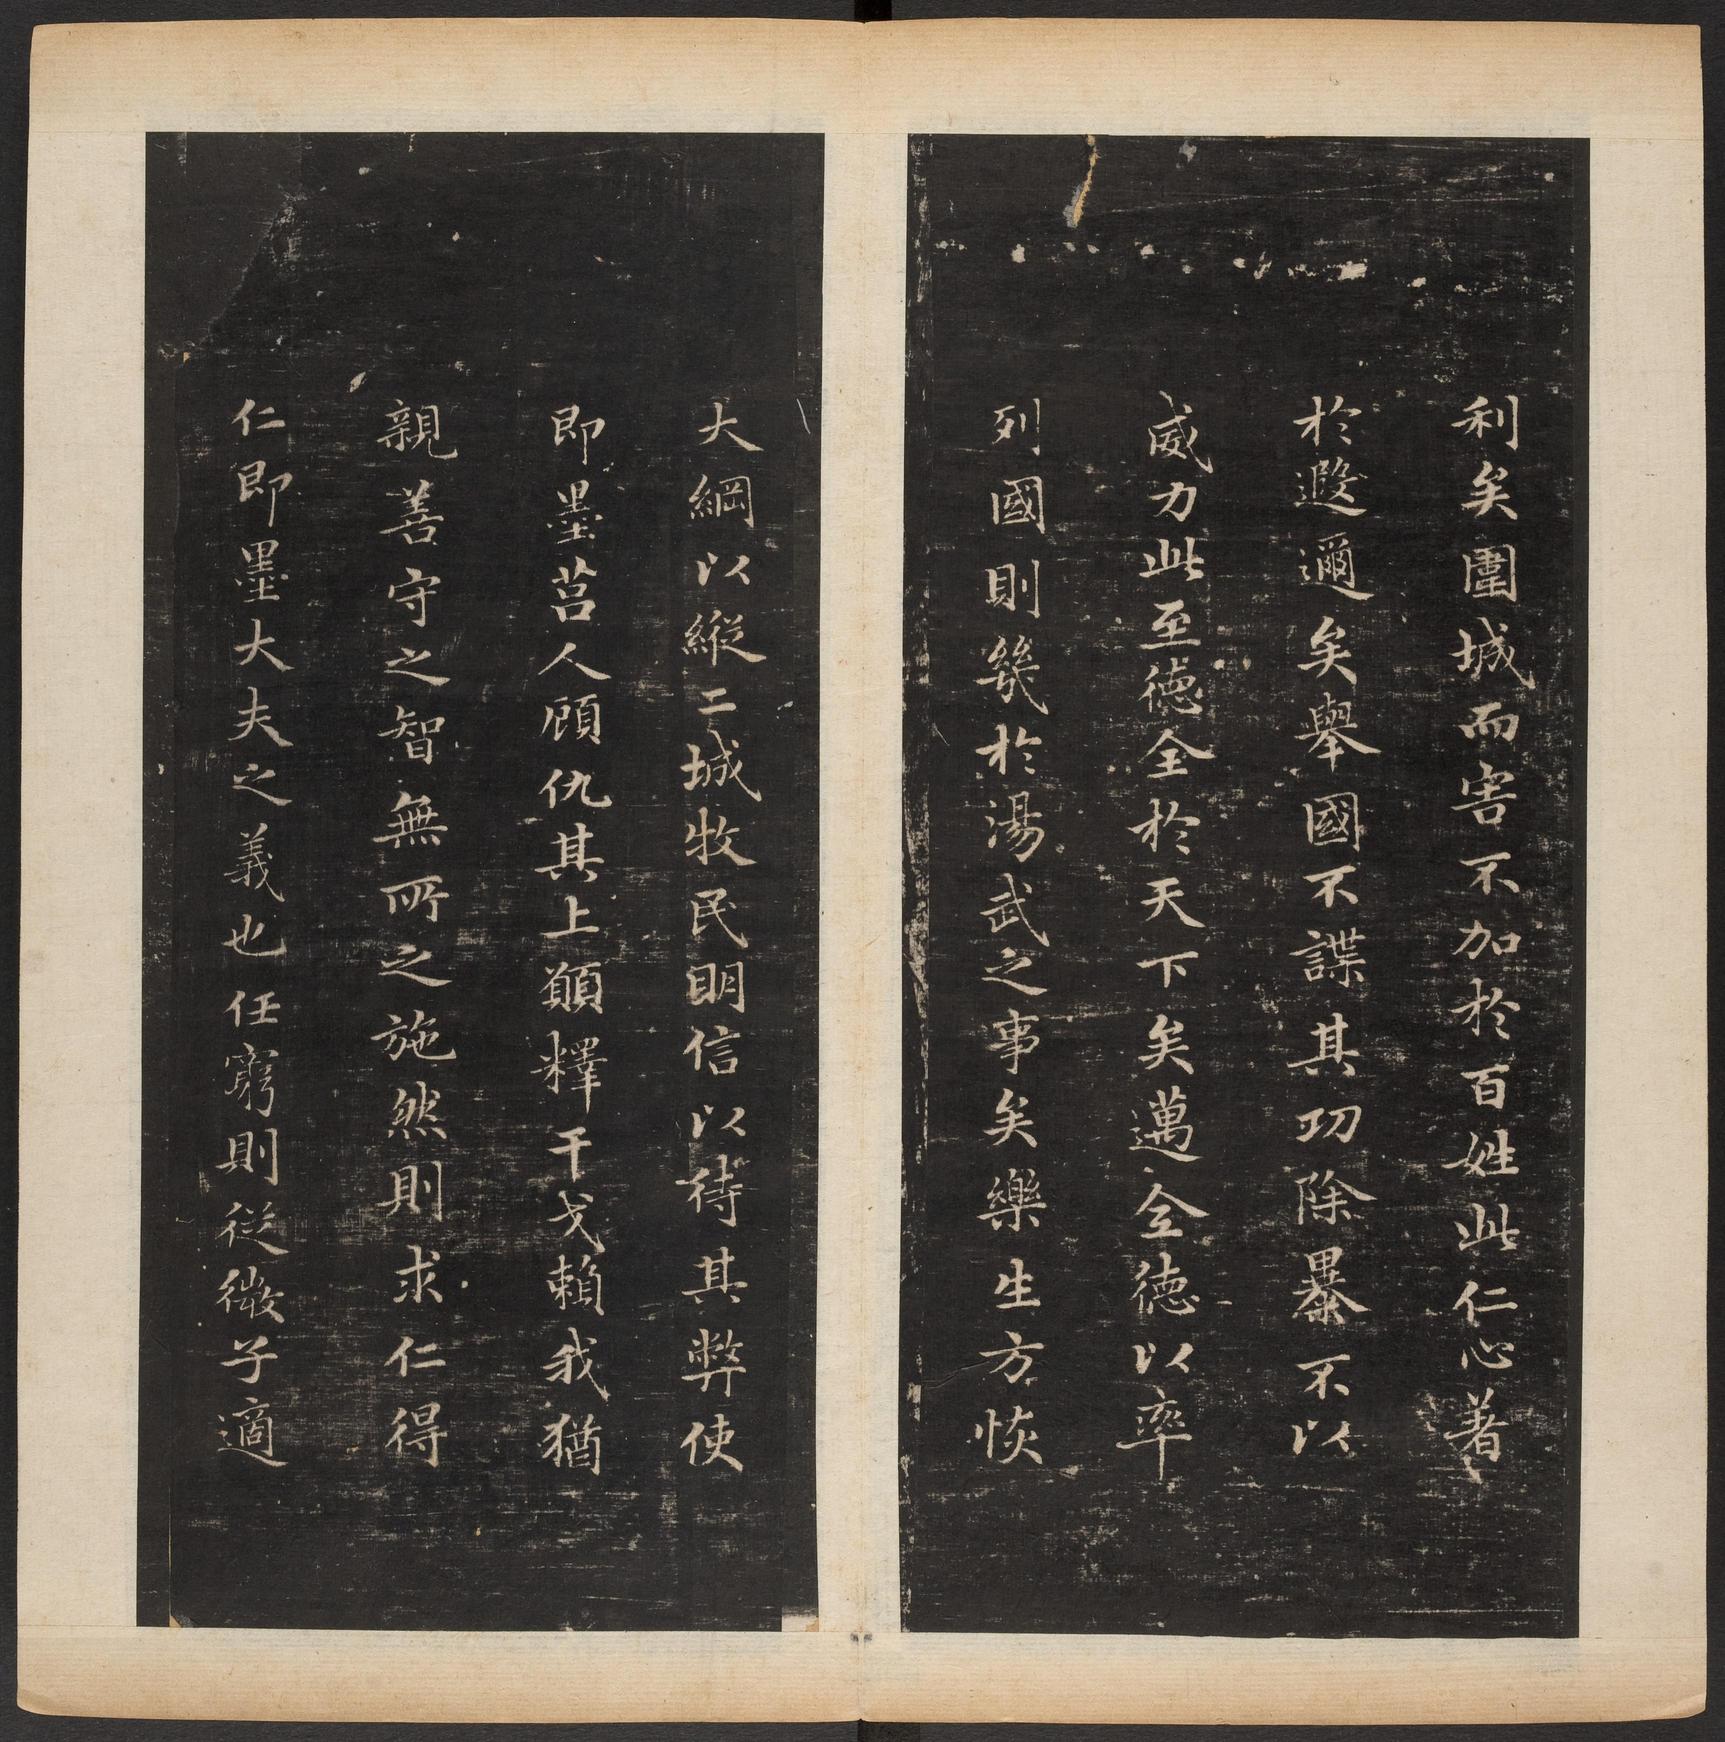 利矣圍城而害不加於百姓此仁心著
於遐邇矣舉國不謀其功除暴不以
威力此至德全於天下矣邁全德以率
列國則幾於湯武之事矣樂生方恢
大綱以縱二城牧民明信以待其弊使
即墨莒人顧仇其上願釋干戈賴我猶
親善守之智無所之施然則求仁得
仁即墨大夫之義也任窮則從微子適